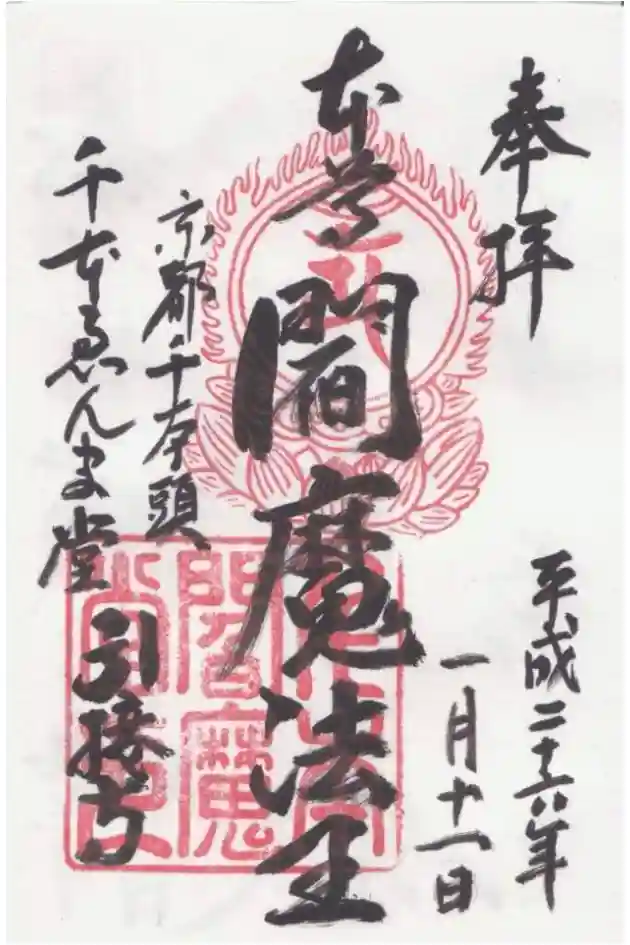 奉拝
平成二十六年
一月十一日
本尊
閻魔法王
京都千本頭
千本ゑんま堂
引接寺
閻魔